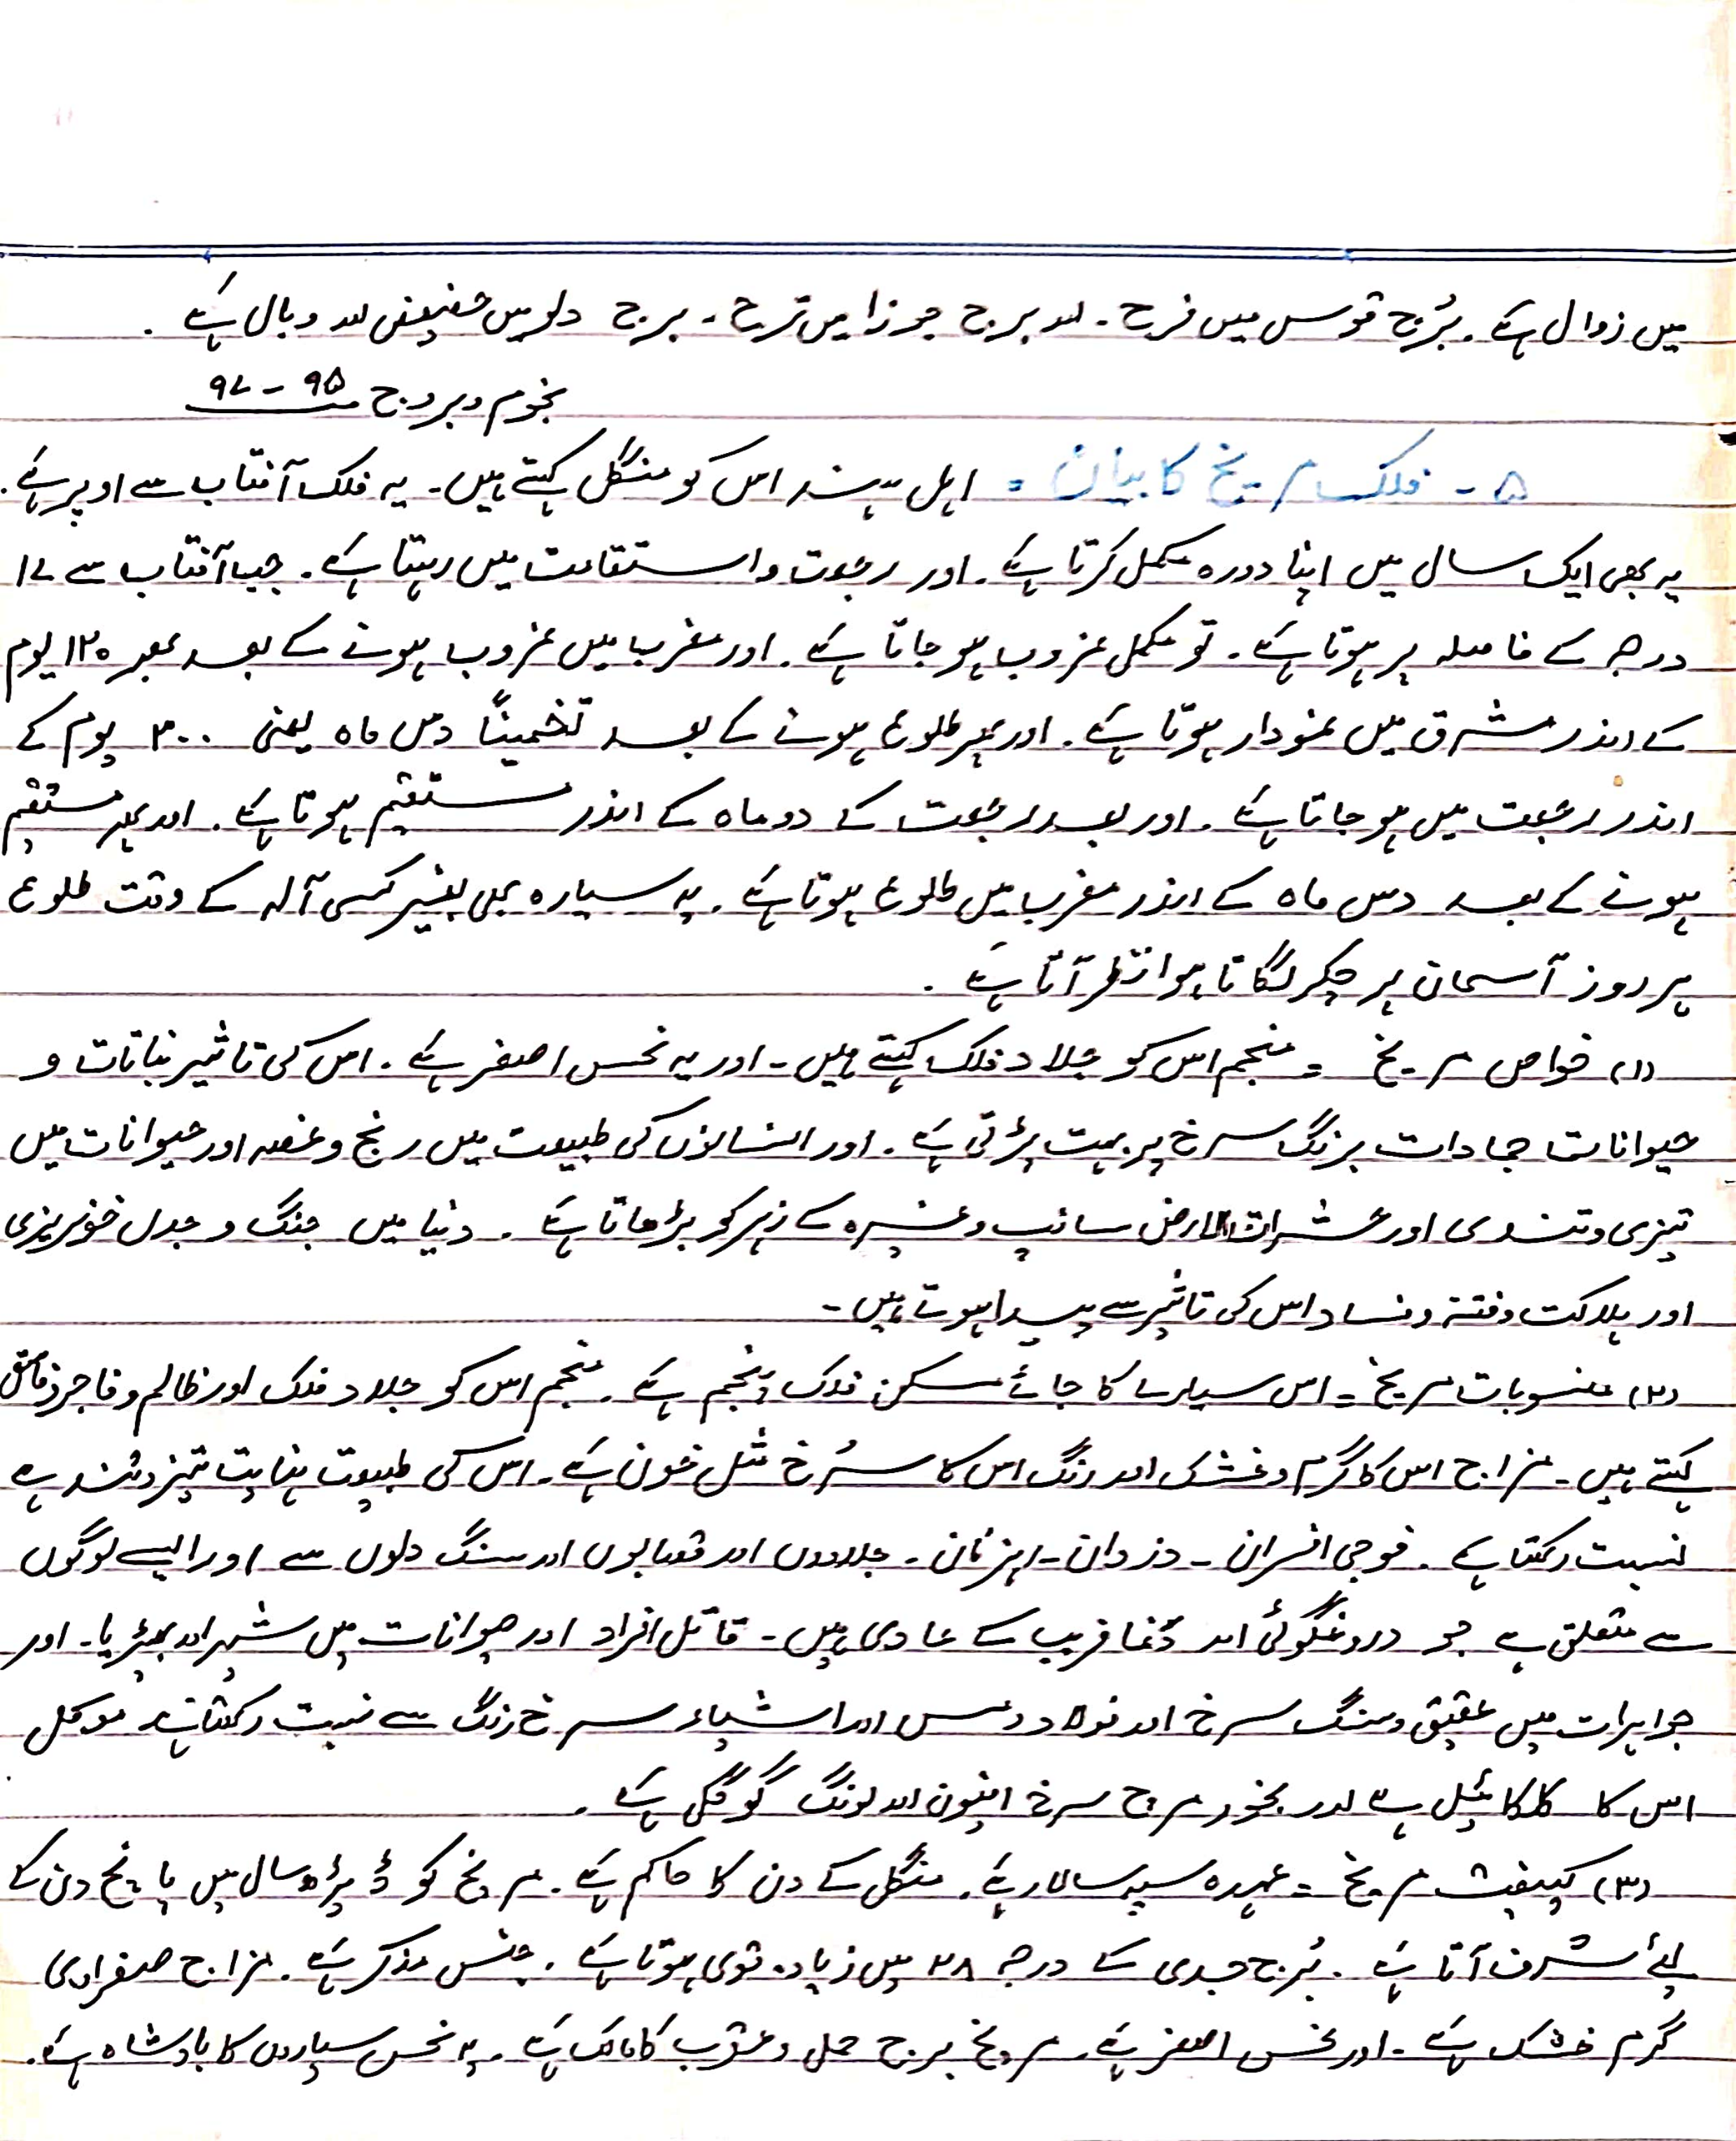 میں زوال ہے ۔ بُرج قوس میں فرح ۔ اور برج جوزا میں ترح ۔ برج دلو میں حضیض اور وبال ہے ۔
نجوم و بروج ۹۵ - ۹۷
۵ ۔ فلک مریخ کا بیان = اہل ہند اس کو منگل کہتے ہیں ۔ یہ فلک آفتاب سے اوپر ہے ۔
یہ بھی ایک سال میں اپنا دورہ مکمل کرتا ہے ۔ اور رجعت و استقامت میں رہتا ہے ۔ جب آفتاب سے ۱۷
درجہ کے فاصلہ پر ہوتا ہے ۔ تو مکمل غروب ہو جاتا ہے ۔ اور مغرب میں غروب ہونے کے بعد پھر ۱۲۰ یوم
کے اندر مشرق میں نمودار ہوتا ہے ۔ اور پھر طلوع ہونے کے بعد تخمیناً دس ماہ یعنی ۳۰۰ یوم کے
اندر رجعت میں ہو جاتا ہے ۔ اور بعد رجعت کے دو ماہ کے اندر مستقیم ہوتا ہے ۔ اور پھر مستقیم
ہونے کے بعد دس ماہ کے اندر مغرب میں طلوع ہوتا ہے ۔ یہ سیارہ بھی بغیر کسی آلہ کے وقت طلوع
ہر روز آسمان پر چکر لگاتا ہوا نظر آتا ہے ۔
(۱) خواص مریخ = منجم اس کو جلاد فلک کہتے ہیں ۔ اور یہ نحس اصغر ہے ۔ اس کی تاثیر نباتات و
حیوانات جمادات برنگ سرخ پر بہت پڑتی ہے ۔ اور انسانوں کی طبیعت میں رنج و غصہ اور حیوانات میں
تیزی و تندی اور حشرات الارض سانپ وغیرہ کے زہر کو بڑھاتا ہے ۔ دنیا میں جنگ و جدل خونریزی
اور ہلاکت و فتنہ و فساد اس کی تاثیر سے پیدا ہوتے ہیں ۔
(۲) منسوبات مریخ = اس سیارے کا جائے مسکن فلک پنجم ہے ۔ منجم اس کو جلاد فلک اور ظالم و فاجر و فاسق
کہتے ہیں ۔ مزاج اس کا گرم و خشک اور رنگ اس کا سُرخ مثل خون ہے ۔ اس کی طبیعت نہایت تیز و تند ہے
نسبت رکھتا ہے ۔ فوجی افسران ۔ دزدان ۔ رہزنان ۔ جلادوں اور قصابوں اور سنگ دلوں سے اور ایسے لوگوں
سے متعلق ہے جو دروغگوئی اور دغا فریب کے عادی ہیں ۔ قاتل افراد اور حیوانات میں شیر اور بھیڑیا ۔ اور
جواہرات میں عقیق و سنگ سرخ اور فولاد و مس اور اشیاء سرخ رنگ سے نسبت رکھتا ہے موکل
اس کا کلکائیل ہے اور بخور مرچ سرخ افیون اور لونگ گوگل ہے ۔
(۳) کیفیت مریخ = عہدہ سپہ سالار ہے ۔ منگل کے دن کا حاکم ہے ۔ مریخ کو ڈیڑھ سال میں پانچ دن کے
لئے شرف آتا ہے ۔ بُرج جدی کے درجہ ۲۸ میں زیادہ قوی ہوتا ہے ۔ جنس مذکر ہے ۔ مزاج صفراوی
گرم خشک ہے ۔ اور نحس اصغر ہے ۔ مریخ برج حمل و عقرب کا مالک ہے ۔ یہ نحس سیاروں کا بادشاہ ہے ۔